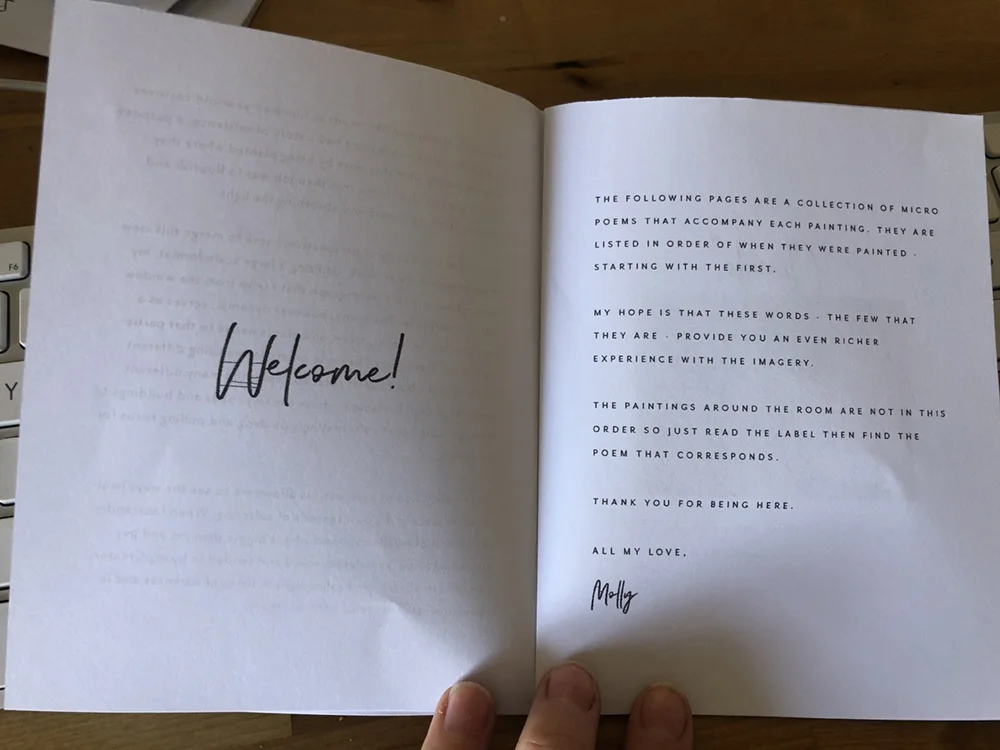 Welcome!
THE FOLLOWING PAGES ARE A COLLECTION OF MICRO
POEMS THAT ACCOMPANY EACH PAINTING. THEY ARE
LISTED IN ORDER OF WHEN THEY WERE PAINTED -
STARTING WITH THE FIRST.
MY HOPE IS THAT THESE WORDS - THE FEW THAT
THEY ARE - PROVIDE YOU AN EVEN RICHER
EXPERIENCE WITH THE IMAGERY.
THE PAINTINGS AROUND THE ROOM ARE NOT IN THIS
ORDER SO JUST READ THE LABEL THEN FIND THE
POEM THAT CORRESPONDS.
THANK YOU FOR BEING HERE.
ALL MY LOVE,
Molly
F6
Y